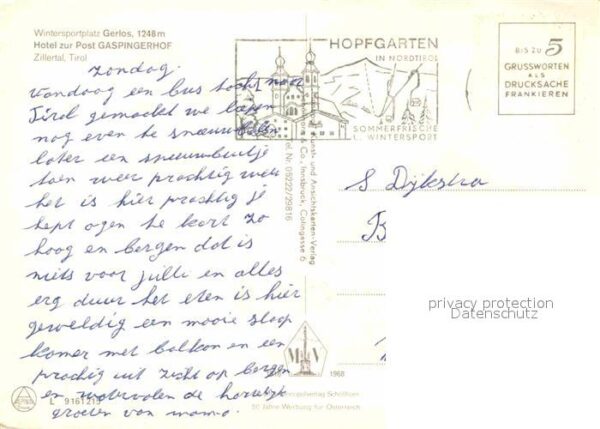 Wintersportplatz Gerlos, 1248 m
Hotel zur Post GASPINGERHOF
Zillertal, Tirol
zondag.
vandaag een bus tocht naar
Tirol gemaakt we
nog even
later een sneeuwbuitje
toen weer prachtig weer
het is hier prachtig je
hept ogen te kort zo
hoog en bergen dat is
niets voor julli en alles
erg duur het eten is hier
geweldig een mooie slaap
kamer met balkon en een
prachig uit zicht op bergen
en watervalen de
groeten van mama.
HOPFGARTEN
IN NORDTIROL
SOMMERFRISCHE
WINTERSPORT
BIS ZU 5
GRUSSWORTEN
ALS
DRUCKSACHE
FRANKIEREN
Kunst- und Ansichtskarten-Verlag
& Co., Innsbruck, Colingasse 6
Tel. Nr. 05222/29816
S Dijkstra
privacy protection
Datenschutz
M V
1968
L 9161219
50 Jahre Werbung für Österreich